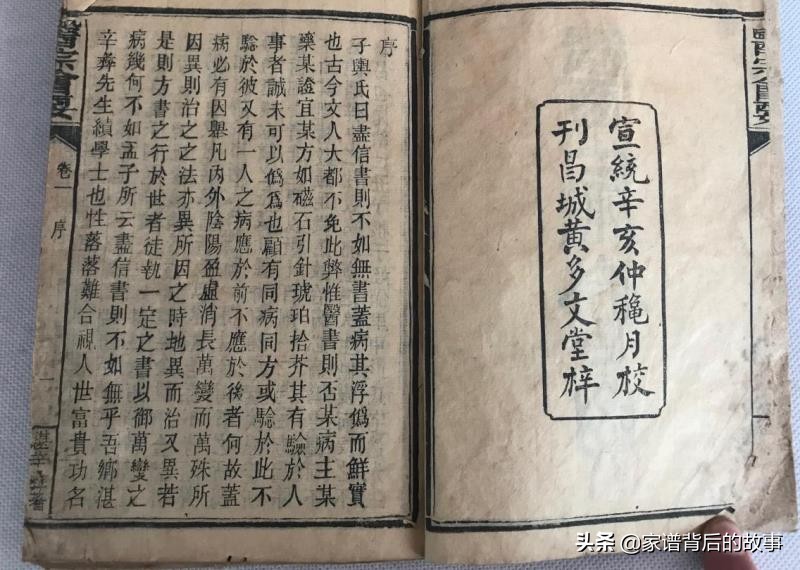 醫宗會要
宣統辛亥仲龝月校
刊昌城黃多文堂梓
序
子輿氏曰盡信書則不如無書蓋病其浮僞而鮮實
也古今文人大都不免此弊惟醫書則否某病主某
藥某證宜某方如磁石引針琥珀拾芥其有驗於人
事者誠未可以僞爲也顧有同病同方或騐於此不
騐於彼又有一人之病應於前不應於後者何故蓋
病必有因舉凡內外陰陽盈虛消長萬變而萬殊所
因異則治之之法亦異所因之時地異而治又異若
是則方書之行於世者徒執一定之書以御萬變之
病幾何不如孟子所云盡信書則不如無乎吾鄉湛
辛彜先生績學士也性落落難合視人世富貴功名
醫宗會要
卷一 序
一
头条 @家谱背后的故事